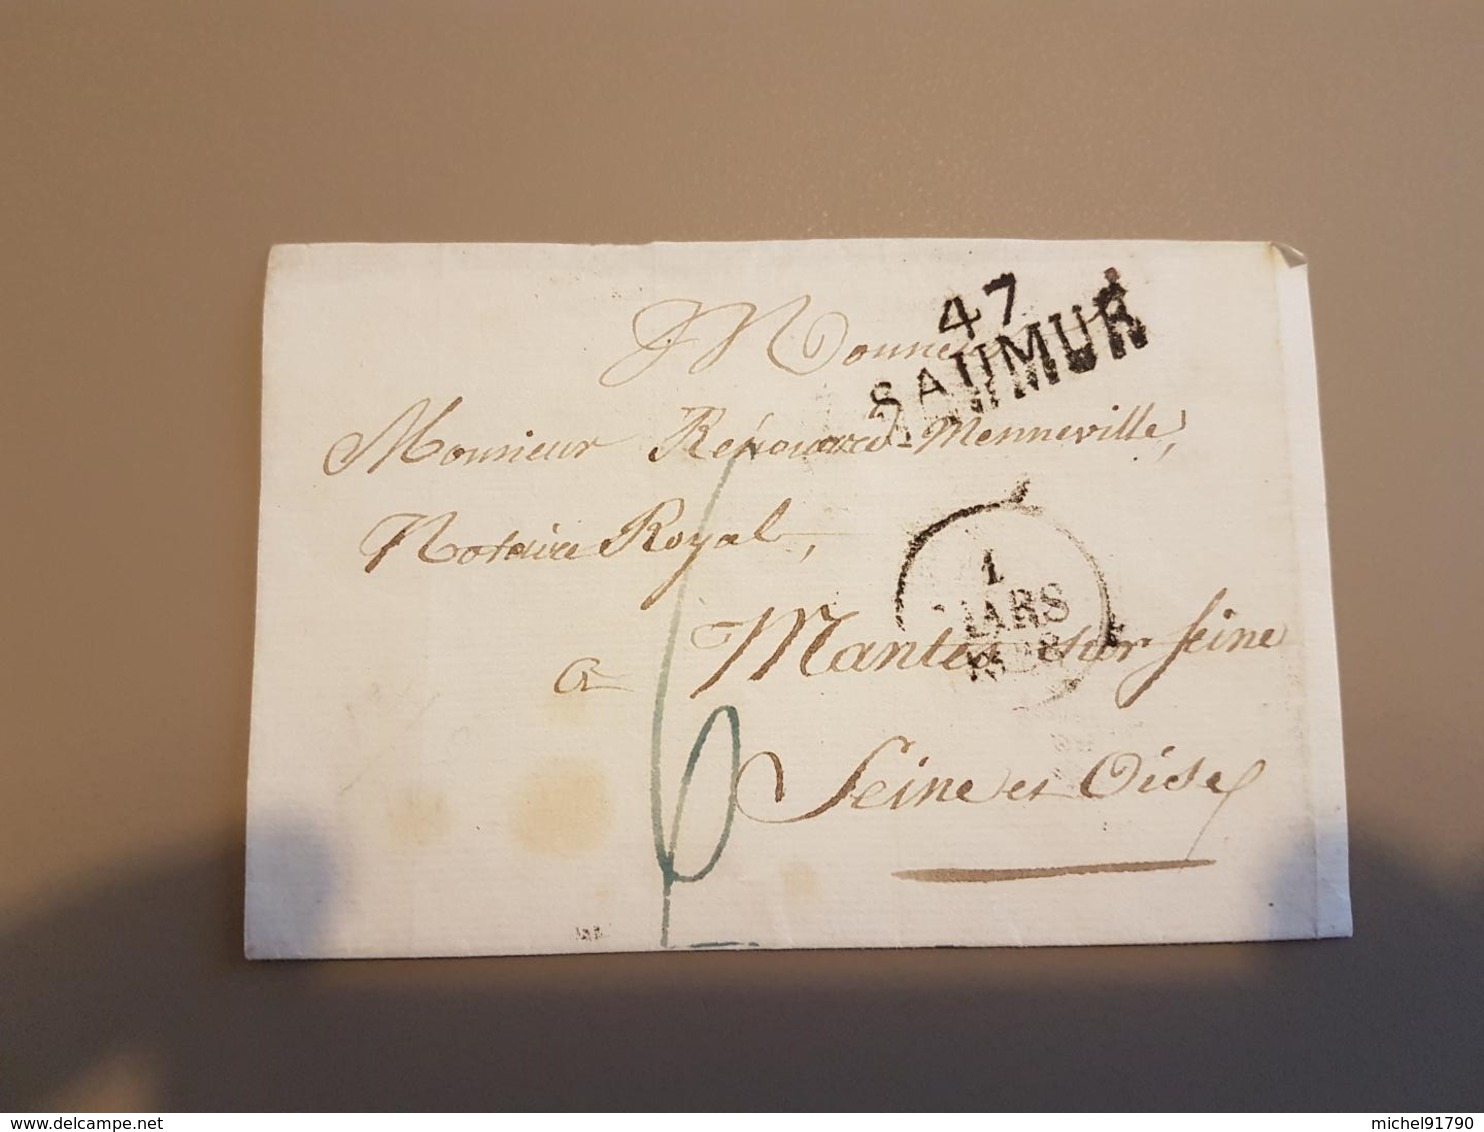 47
SAUMUR
Monsieur
Monsieur Rénouard-Menneville,
Notaire Royal,
1
MARS
1828
a Mantes sur Seine
Seine et Oise
6
delcampe.net
michel91790